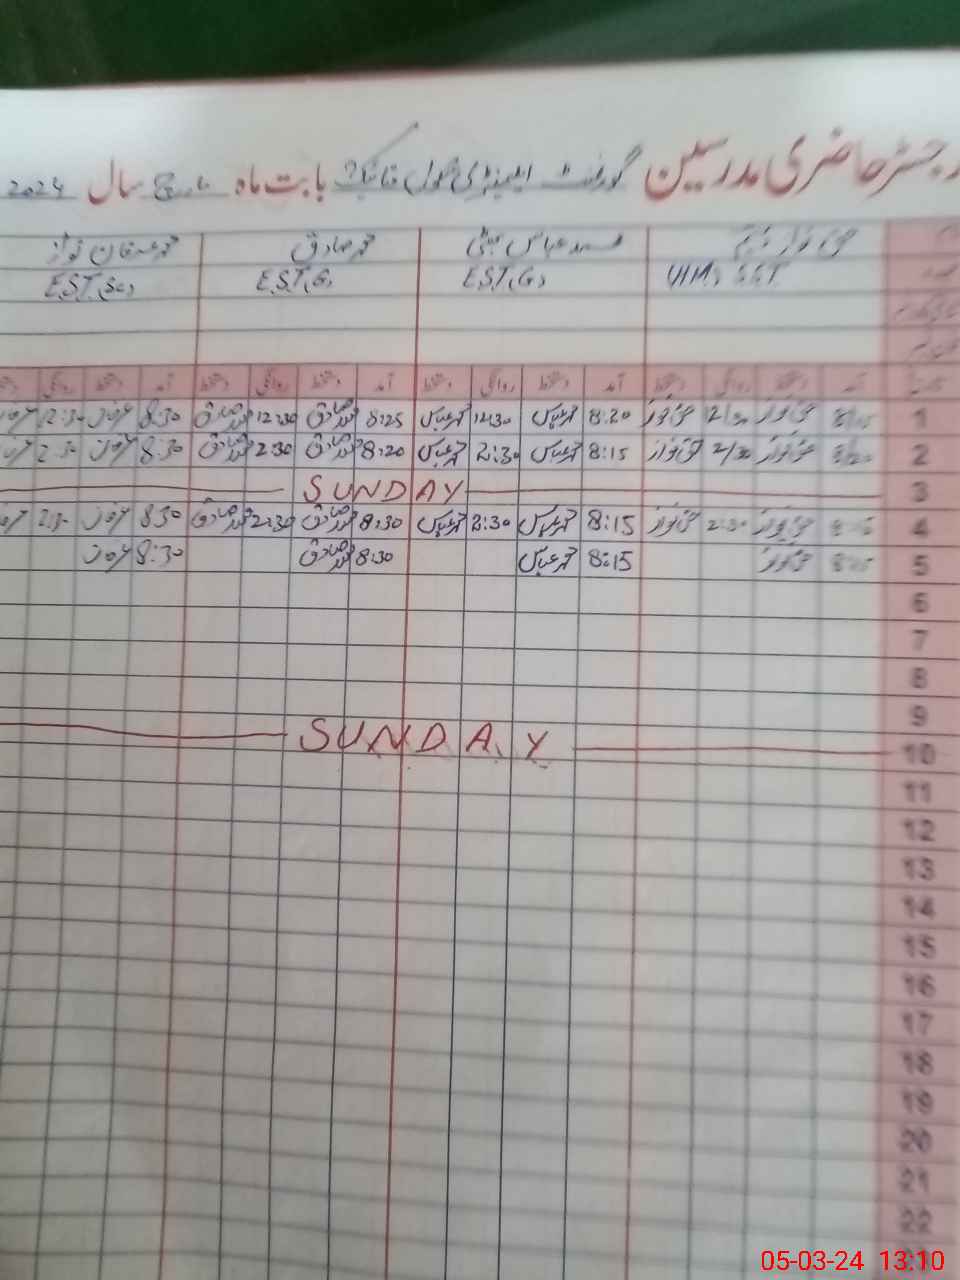 رجسٹر حاضری مدرسین گورنمنٹ ایلیمنٹری سکول بابت ماہ مارچ سال 2024
حق نواز محمد عباس بھٹی محمد صادق محمد عرفان نواز
SST EST(G) EST(G) EST(Sc)
آمد دستخط روانگی دستخط آمد دستخط روانگی دستخط آمد دستخط روانگی دستخط آمد دستخط روانگی دستخط
1 حق نواز 12/30 حق نواز 8:20 محمد عباس 12:30 محمد عباس 8:25 محمد صادق 12:30 محمد صادق 8:30 عرفان 12:30
2 حق نواز 2/30 حق نواز 8:15 محمد عباس 2:30 محمد عباس 8:20 محمد صادق 2:30 محمد صادق 8:30 عرفان 2:30
3 SUNDAY
4 حق نواز 2:30 حق نواز 8:15 محمد عباس 2:30 محمد عباس 8:30 محمد صادق 2:30 محمد صادق 8:30 عرفان
5 حق نواز 8:15 محمد عباس 8:30 محمد صادق 8:30 عرفان
6
7
8
9
10 SUNDAY
11
12
13
14
15
16
17
18
19
20
21
22
05-03-24 13:10